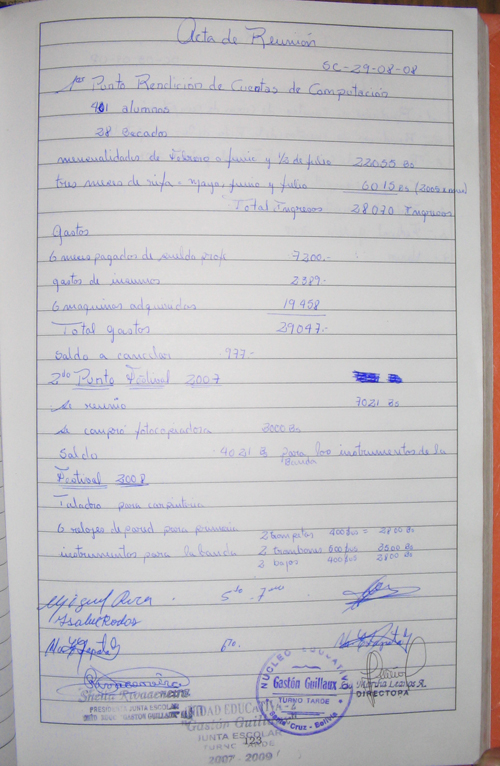 Acta de Reunión
SC-29-08-08
1er Punto Rendición de Cuentas de Computación
alumnos
28 becados
mensualidades de Febrero a junio y 1/2 de julio 22055 Bs
tres meses de rifa - mayo, junio y julio 6015 Bs
Total Ingresos 28070 Ingresos
Gastos
6 meses pagados de sueldo prof. 7200.-
gastos de insumos 2389.-
6 maquinas adquiridas 19458
Total gastos 29047.-
Saldo a cancelar 977.-
2do Punto Festival 2007
Se reunio 7021 Bs
Se compró fotocopiadora 3000 Bs
Saldo 4021 B para los instrumentos de la
Banda
Festival 2008
Taladro para carpinteria
6 relojes de pared para primaria 2 trompetas 400 Bs = 2800 Bs
instrumentos para la banda 2 trombones 500 Bs 3500 Bs
2 bajos 400 Bs 2800 Bs
Miguel
5to 7mo
Isabel Rodas
PRESIDENTE JUNTA ESCOLAR
"GASTON GUILLAUX"
UNIDAD EDUCATIVA
Gastón Guillaux
JUNTA ESCOLAR
TURNO TARDE
2007 - 2009
NÚCLEO EDUCATIVO
Gastón Guillaux
TURNO TARDE
Santa Cruz - Bolivia
DIRECTORA
123